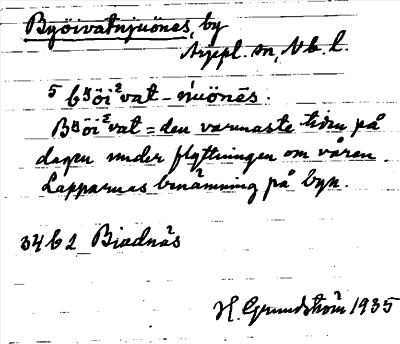 Byöivatnjuönes, by
Arjepl. sn, Nb. l.
5 bɥöi²vat-ńuönēs.
Bɥöi²vat = den varmaste tiden på
dagen under flyttningen om våren.
Lapparnas benämning på byn.
34 b 2 Biadnäs
H. Grundström 1935